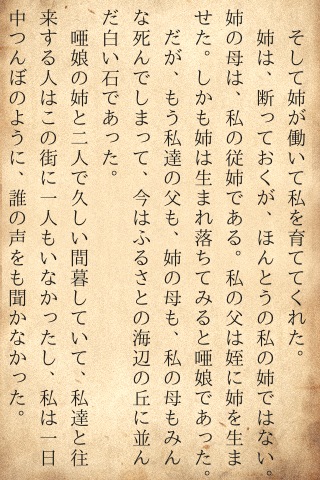 そして姉が働いて私を育ててくれた。
姉は、断っておくが、ほんとうの私の姉ではない。
姉の母は、私の従姉である。私の父は姪に姉を生ま
せた。しかも姉は生まれ落ちてみると唖娘であった。
だが、もう私達の父も、姉の母も、私の母もみん
な死んでしまって、今はふるさとの海辺の丘に並ん
だ白い石であった。
唖娘の姉と二人で久しい間暮していて、私達と往
来する人はこの街に一人もいなかったし、私は一日
中つんぼのように、誰の声をも聞かなかった。